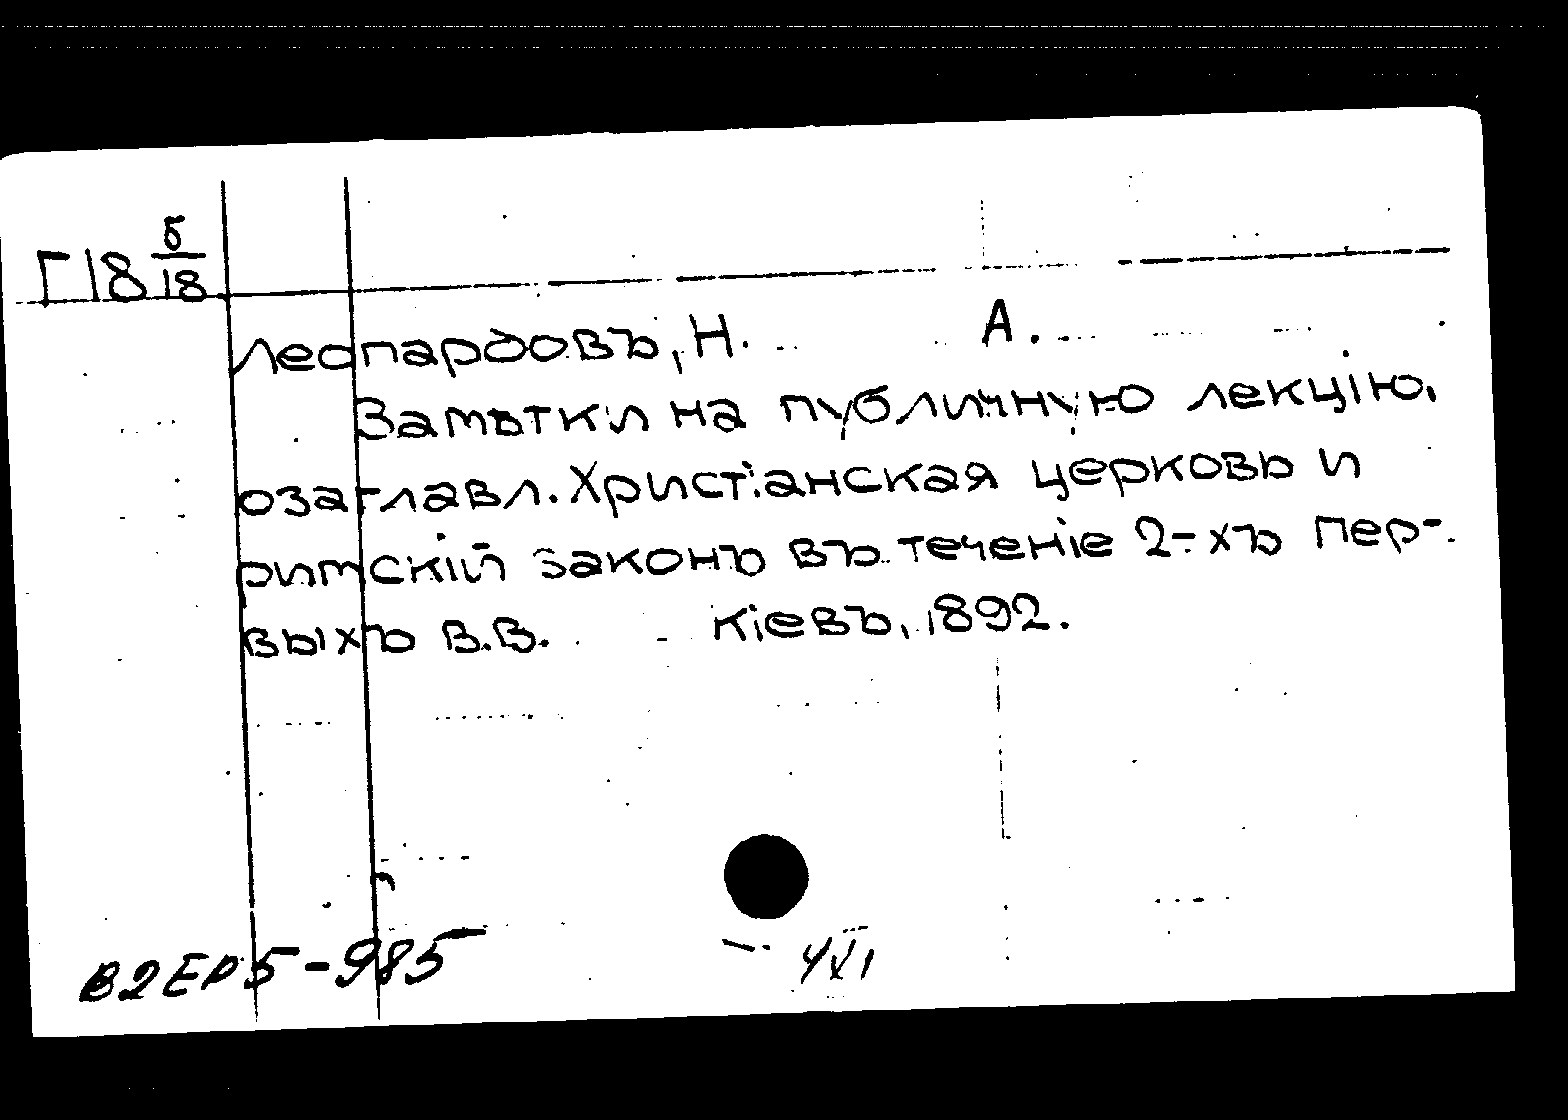 Г18 б/18
Леопардовъ, Н. А.
Замѣтки на публичную лекцію,
озаглавл. Христіанская церковь и
римскій законъ въ теченіе 2-хъ пер-
выхъ в.в. Кіевъ, 1892.
В2ЕР5-985